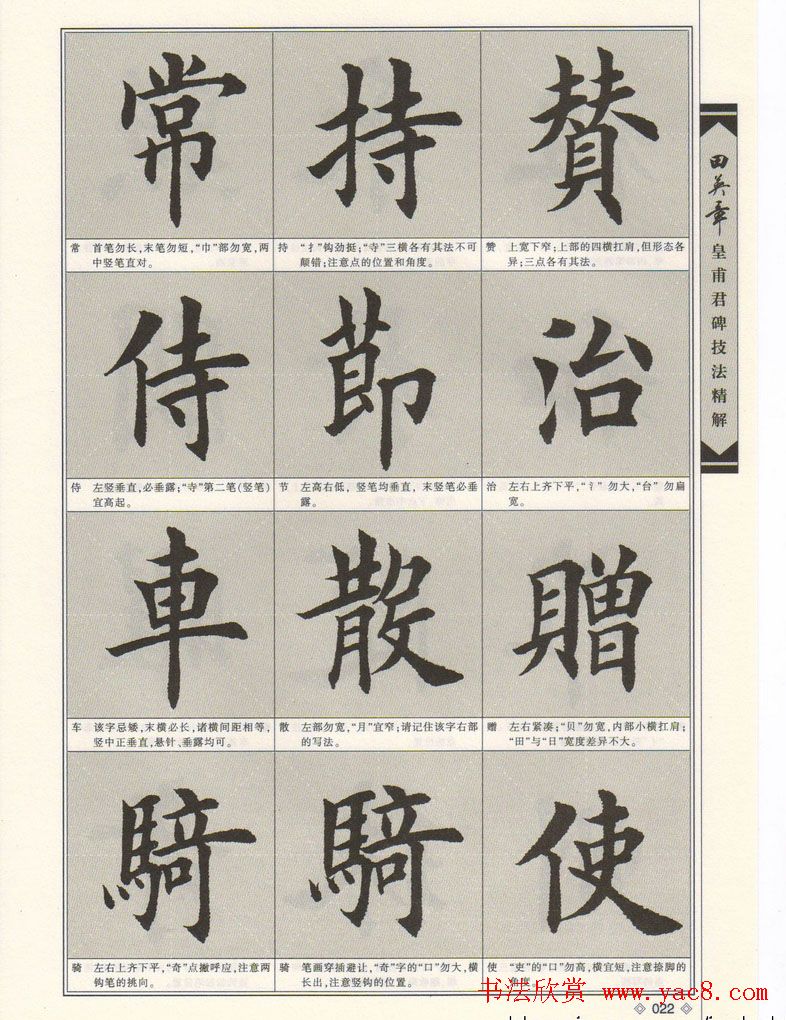 常
持
赞
常 首笔勿长，末笔勿短，“巾”部勿宽，两
中竖笔直对。
持 “扌”钩劲挺；“寺”三横各有其法不可
颠错；注意点的位置和角度。
赞 上宽下窄；上部的四横扛肩，但形态各
异；三点各有其法。
侍
節
治
侍 左竖垂直，必垂露；“寺”第二笔(竖笔)
宜高起。
节 左高右低，竖笔均垂直，末竖笔必垂
露。
治 左右上齐下平，“氵”勿大，“台”勿扁
宽。
車
散
贈
车 该字忌矮，末横必长，诸横间距相等，
竖中正垂直，悬针、垂露均可。
散 左部勿宽，“月”宜窄；请记住该字右部
的写法。
赠 左右紧凑；“贝”勿宽，内部小横扛肩；
“田”与“日”宽度差异不大。
騎
騎
使
骑 左右上齐下平，“奇”点撇呼应，注意两
钩笔的挑向。
骑 笔画穿插避让，“奇”字的“口”勿大，横
长出，注意竖钩的位置。
使 “吏”的“口”勿高，横宜短，注意捺脚的
角度。
田英章皇甫君碑技法精解
书法欣赏 www.yac8.com
022